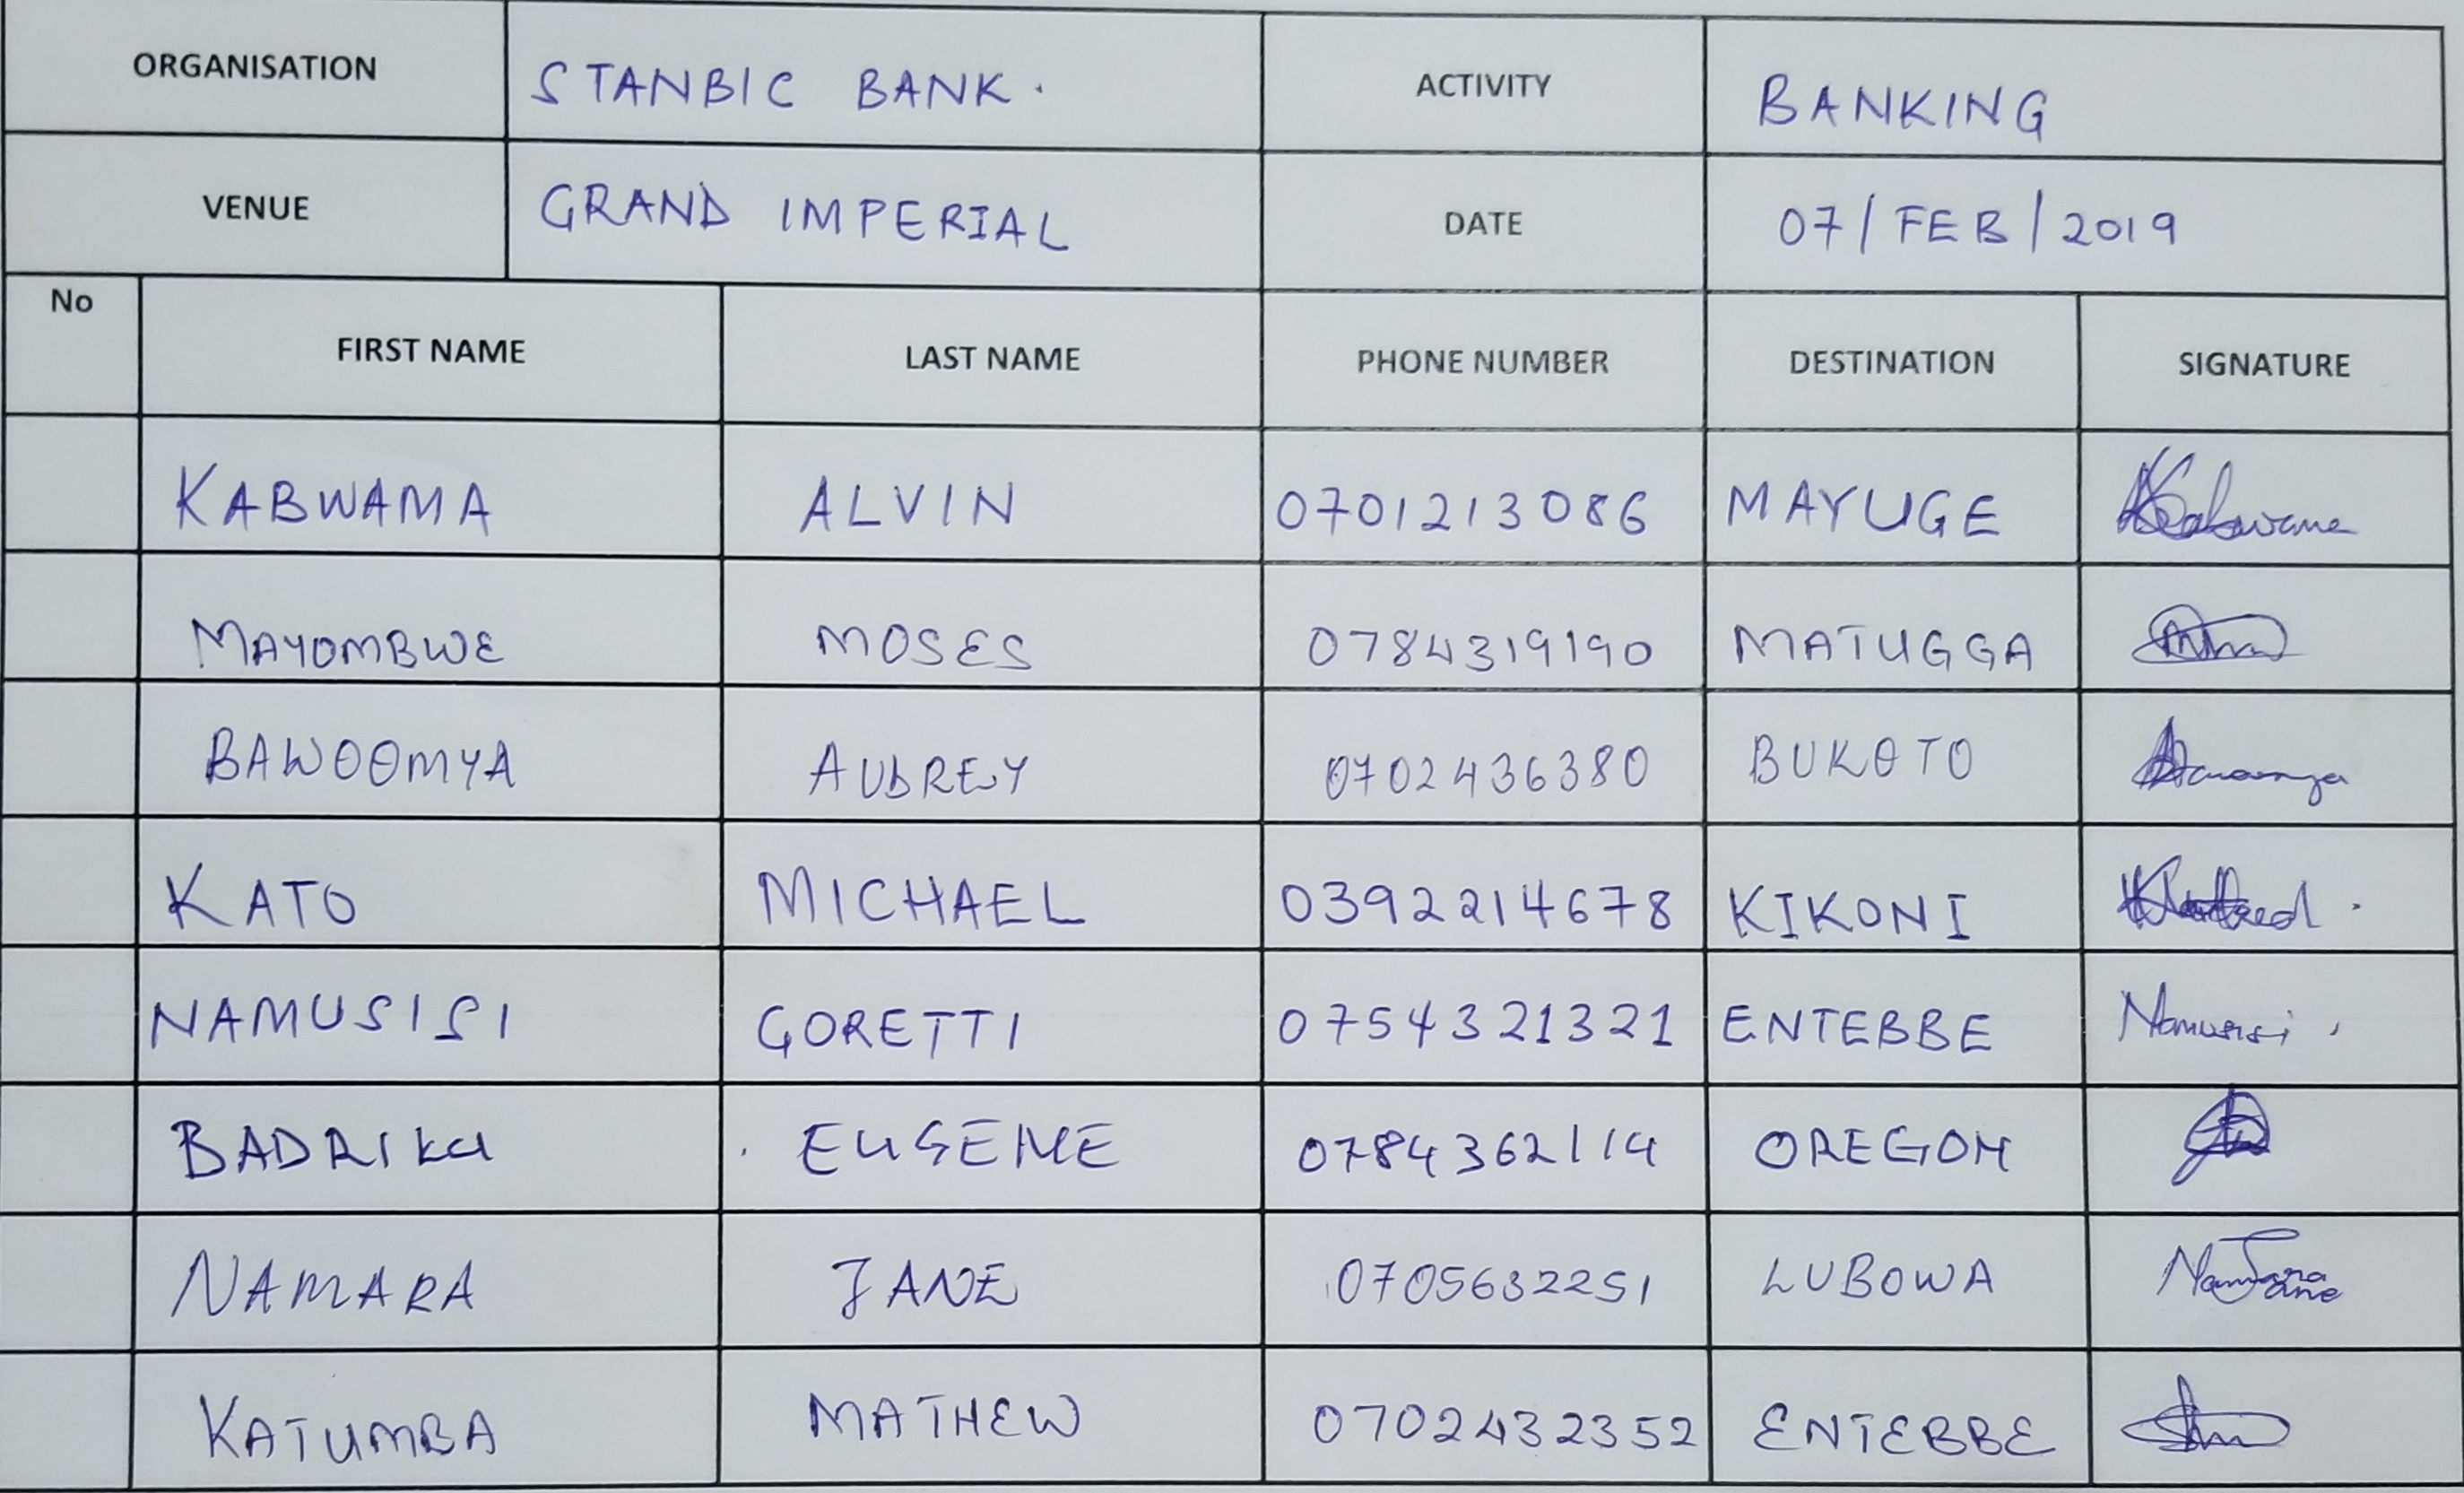 ORGANISATION STANBIC BANK. ACTIVITY BANKING
VENUE GRAND IMPERIAL DATE 07/FEB/2019
No FIRST NAME LAST NAME PHONE NUMBER DESTINATION SIGNATURE
KABWAMA ALVIN 0701213086 MAYUGE Kabwama
MAYOMBWE MOSES 0784319190 MATUGGA
BAWOOMYA AUBREY 0702436380 BUKOTO
KATO MICHAEL 0392214678 KIKONI
NAMUSISI GORETTI 0754321321 ENTEBBE Namusisi
BADRIKU EUGENE 0784362114 OREGON
NAMARA JANE 0705632251 LUBOWA
KATUMBA MATHEW 0702432352 ENTEBBE